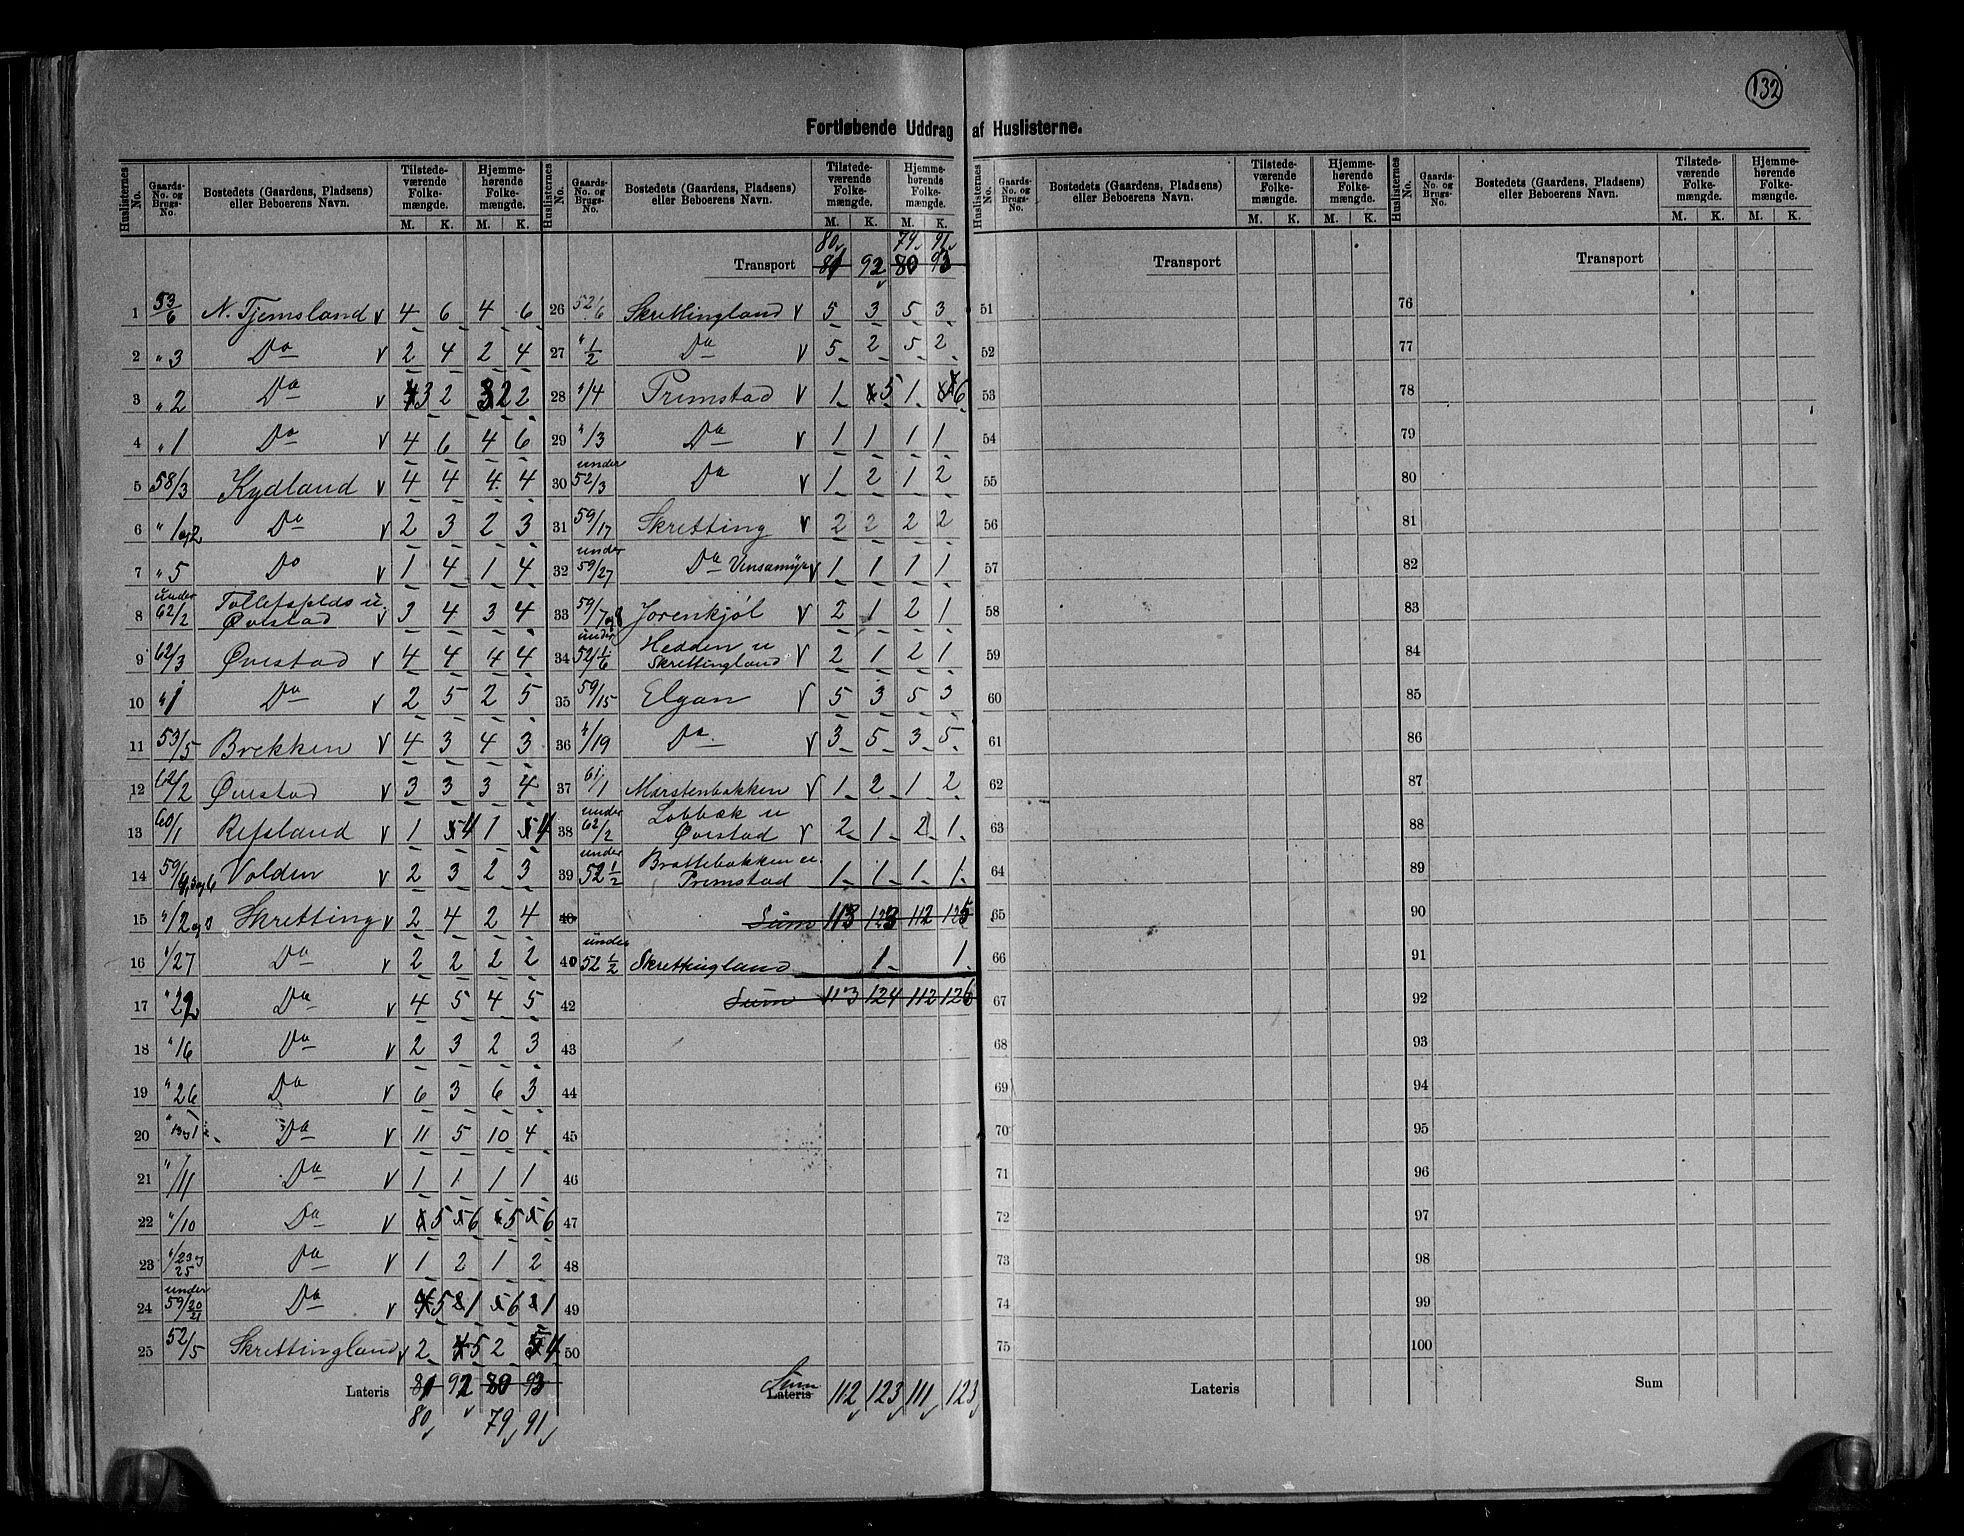 132
Fortløbende Uddrag af Huslisterne.
Huslisternes No. | Gaards-No. og Brugs-No. | Bostedets (Gaardens, Pladsen) eller Beboerens Navn. | Tilstedeværende Folkemængde. M. K. | Hjemmehørende Folkemængde. M. K.
1 53/6 N. Tjemsland v 4 6 4 6
2 " 3 Do v 2 4 2 4
3 " 2 Do v 3 2 2 2
4 " 1 Do v 4 6 4 6
5 58/3 Kydland v 4 4 4 4
6 " 1 og 2 Do v 2 3 2 3
7 " 5 Do v 1 4 1 4
8 under 62/2 Øvestad v 3 4 3 4
9 62/3 Øvestad v 4 4 4 4
10 " 1 Do v 2 5 2 5
11 53/5 Brekken v 4 3 4 3
12 62/2 Øvestad v 3 3 3 4
13 60/1 Refsland v 1 4 1 4
14 59/ Volden v 2 3 2 3
15 "/2 og Skretting v 2 4 2 4
16 "/27 Do v 2 2 2 2
17 " Do v 4 5 4 5
18 "16 Do v 2 3 2 3
19 "26 Do v 6 3 6 3
20 Do v 11 5 10 4
21 "/11 Do v 1 1 1 1
22 "/10 Do v 5 6 5 6
23 "/23 og 25 Do v 1 2 1 2
24 under 59/20/21 Do v 5 1 6 1
25 52/5 Skrettingland v 2 5 2 4
Lateris 81 92 80 93
80 79 91
Huslisternes No. | Gaards-No. og Brugs-No. | Bostedets (Gaardens, Pladsen) eller Beboerens Navn. | Tilstedeværende Folkemængde. M. K. | Hjemmehørende Folkemængde. M. K.
80 79 91
Transport 81 92 80 93
26 52/6 Skrettingland v 5 3 5 3
27 " 1/2 Do v 5 2 5 2
28 "/4 Primstad v 1 5 1 6
29 "/3 Do v 1 1 1 1
30 under 52/3 Do v 1 2 1 2
31 59/17 Skretting v 2 2 2 2
32 under 59/27 Do Vinsamyr v 1 1 1 1
33 59/7 og Jorenkjøl v 2 1 2 1
34 under 52 1/6 Hedden u Skrettingland v 2 1 2 1
35 59/15 Elgan v 5 3 5 3
36 "/19 Do v 3 5 3 5
37 61/1 Marstenbakken v 1 2 1 2
38 under 62/2 Lobbæk u Øvestad v 2 1 2 1
39 under 52 1/2 Brattebakken u. Primstad 1 1 1 1
40 Sum 113 123 112 125
40 under 52 1/2 Skrettingland 1 1
42 Sum 113 124 112 126
43
44
45
46
47
48
49
50
Sum Lateris 112 123 111 123
Huslisternes No. | Gaards-No. og Brugs-No. | Bostedets (Gaardens, Pladsen) eller Beboerens Navn. | Tilstedeværende Folkemængde. M. K. | Hjemmehørende Folkemængde. M. K.
Transport
51
52
53
54
55
56
57
58
59
60
61
62
63
64
65
66
67
68
69
70
71
72
73
74
75
Lateris
Huslisternes No. | Gaards-No. og Brugs-No. | Bostedets (Gaardens, Pladsen) eller Beboerens Navn. | Tilstedeværende Folkemængde. M. K. | Hjemmehørende Folkemængde. M. K.
Transport
76
77
78
79
80
81
82
83
84
85
86
87
88
89
90
91
92
93
94
95
96
97
98
99
100
Sum